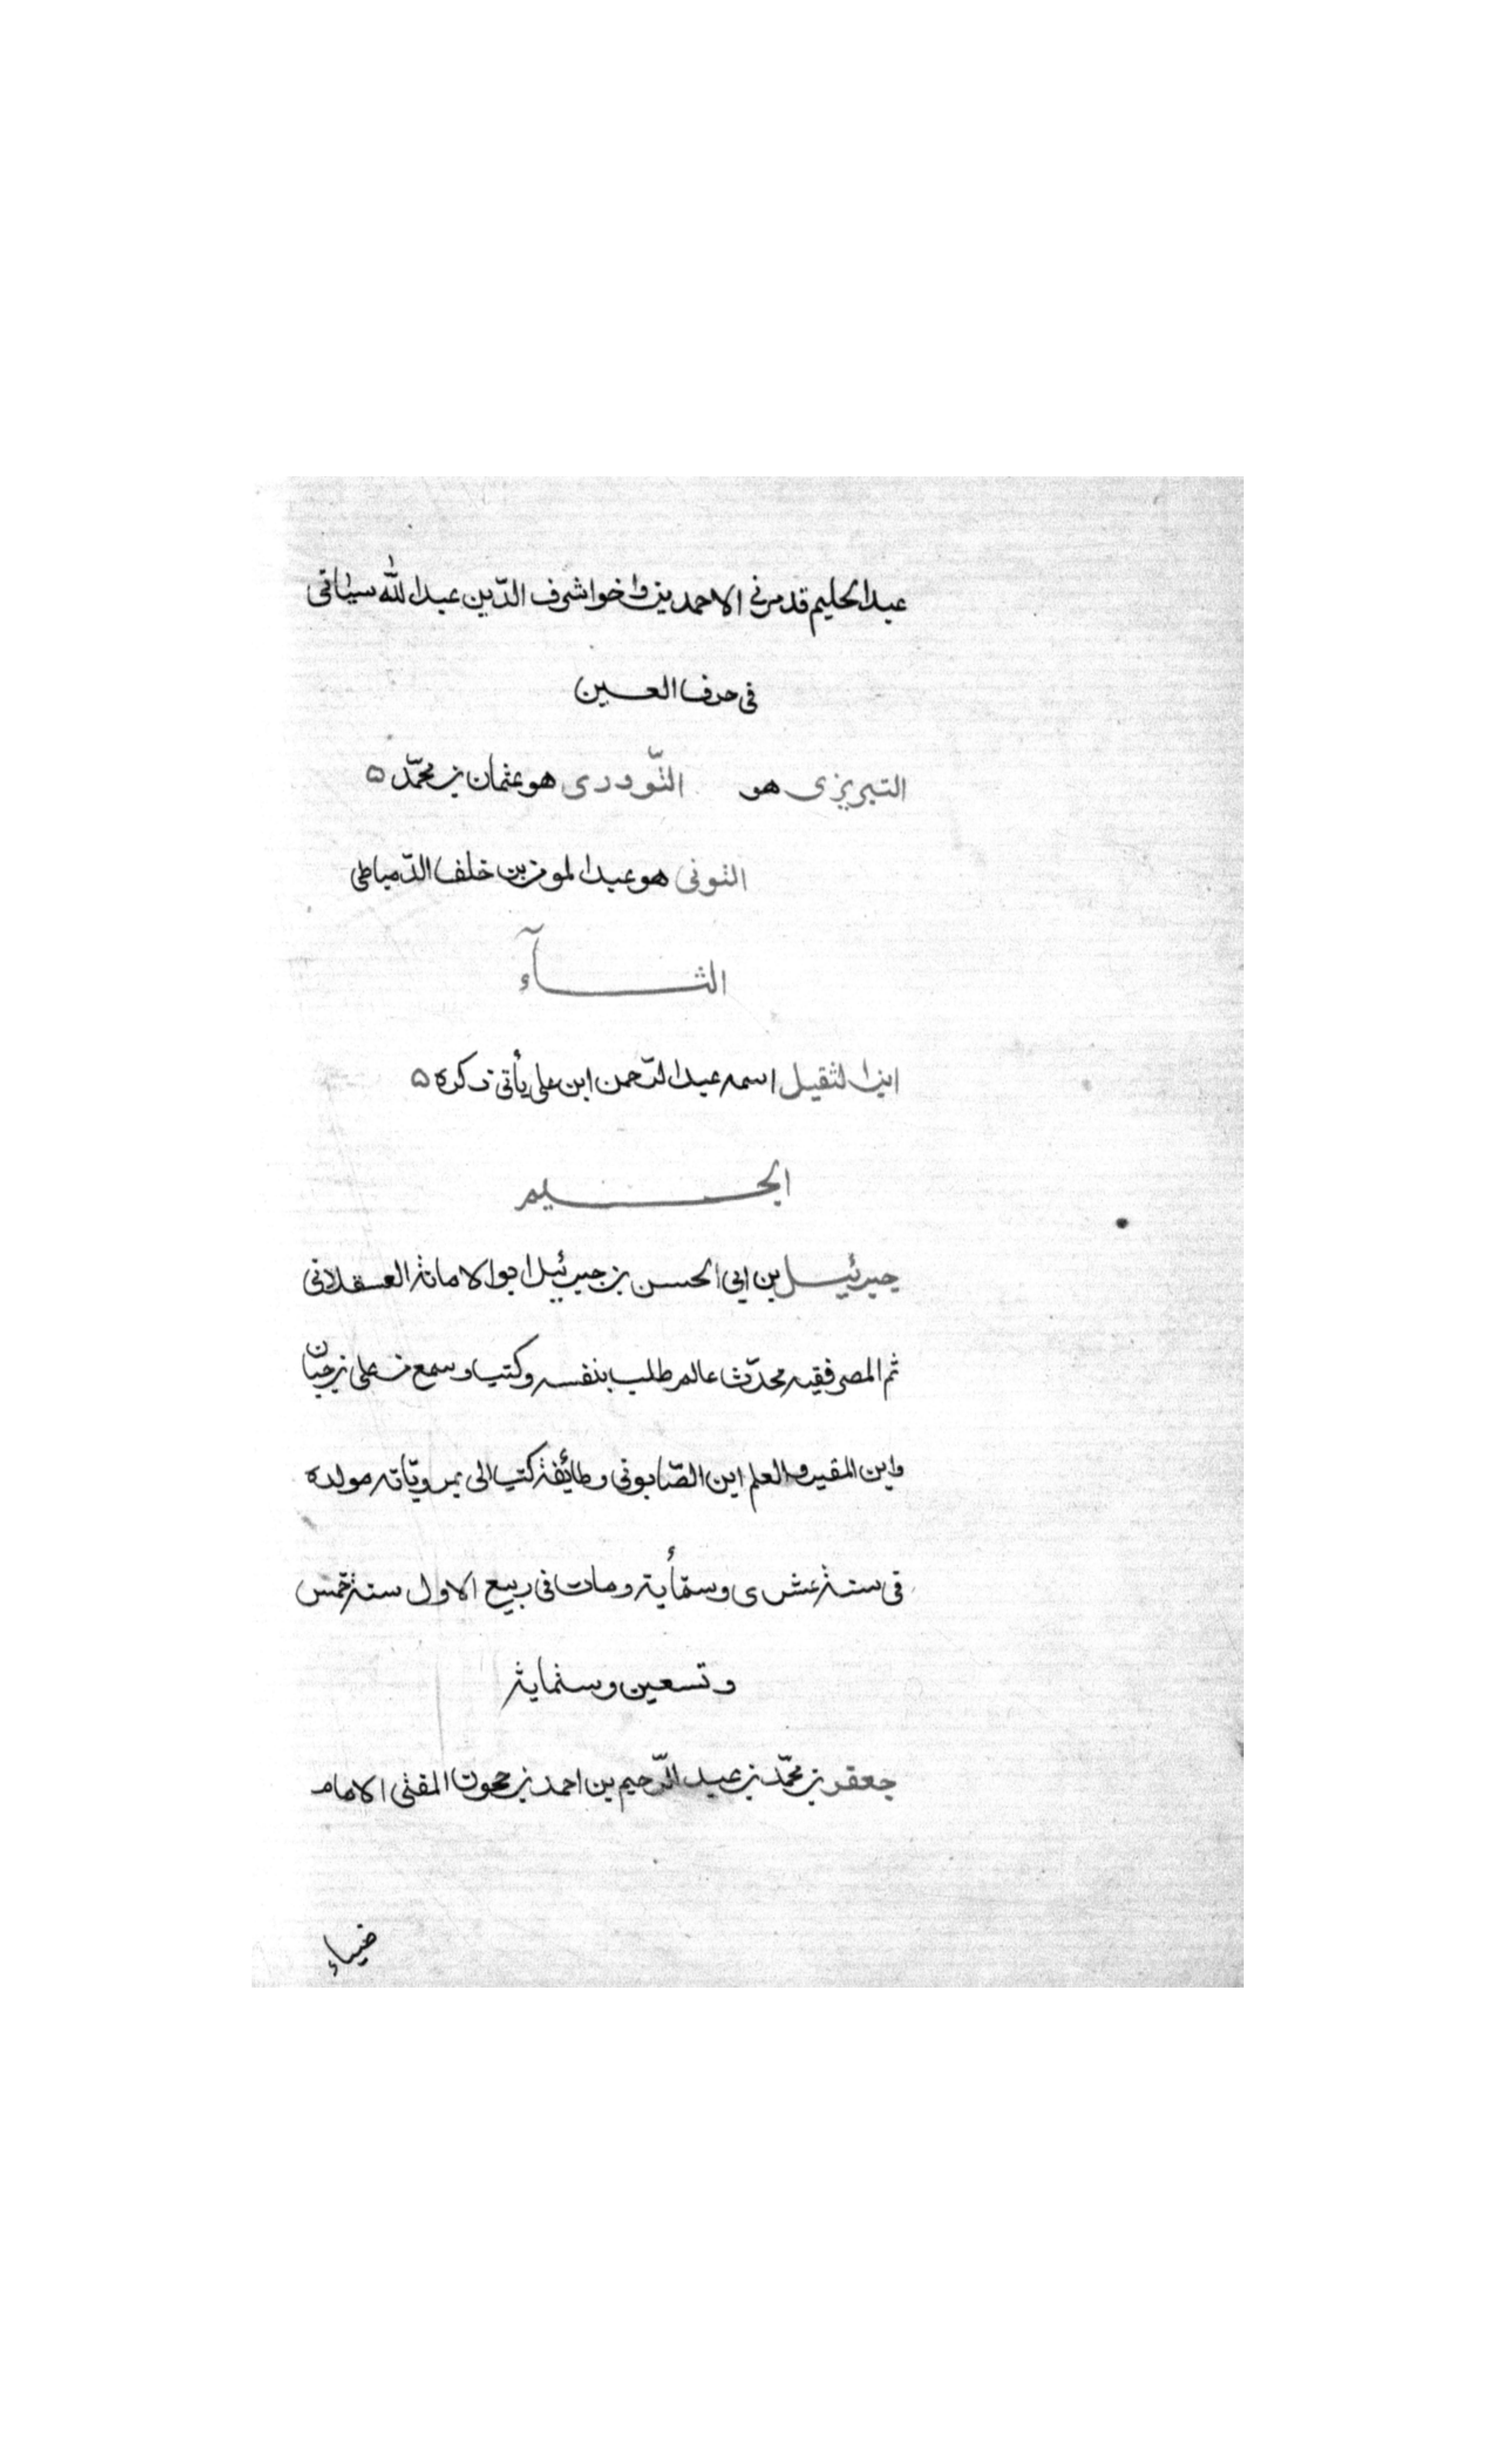 عبد الحليم قد مر في الاحمدين واخوا شرف الدّين عبد الله سيأتي
في حرف العين
التبريزى هو التّوددى هو عثمان بن محمّد ه
التونى هو عبد المومن بن خلف الدّمياطى
الثآء
ابن الثقيل اسمه عبد الرّحمن ابن على يأتى ذكره ه
الجيم
جبرئيل بن ابى الحسن بن جبرئيل ابو الامانة العسقلانى
ثم المصر فقيه محدّث عالم طلب بنفسه وكتب وسمع من على بن حبّان
وابن المقير والعلم ابن الصّابونى وطائفة كتب الى بمرويّاته مولده
فى سنة عشرى وستمأية ومات فى ربيع الاول سنة خمس
وتسعين وستماية
جعفر بن محمّد بن عبد الرّحيم بن احمد بن حجون المفتى الامام
ضياء